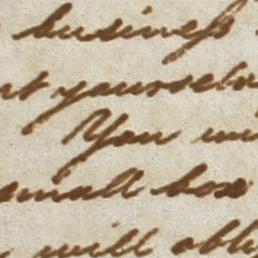 business
yourselv
You
small box
will obl